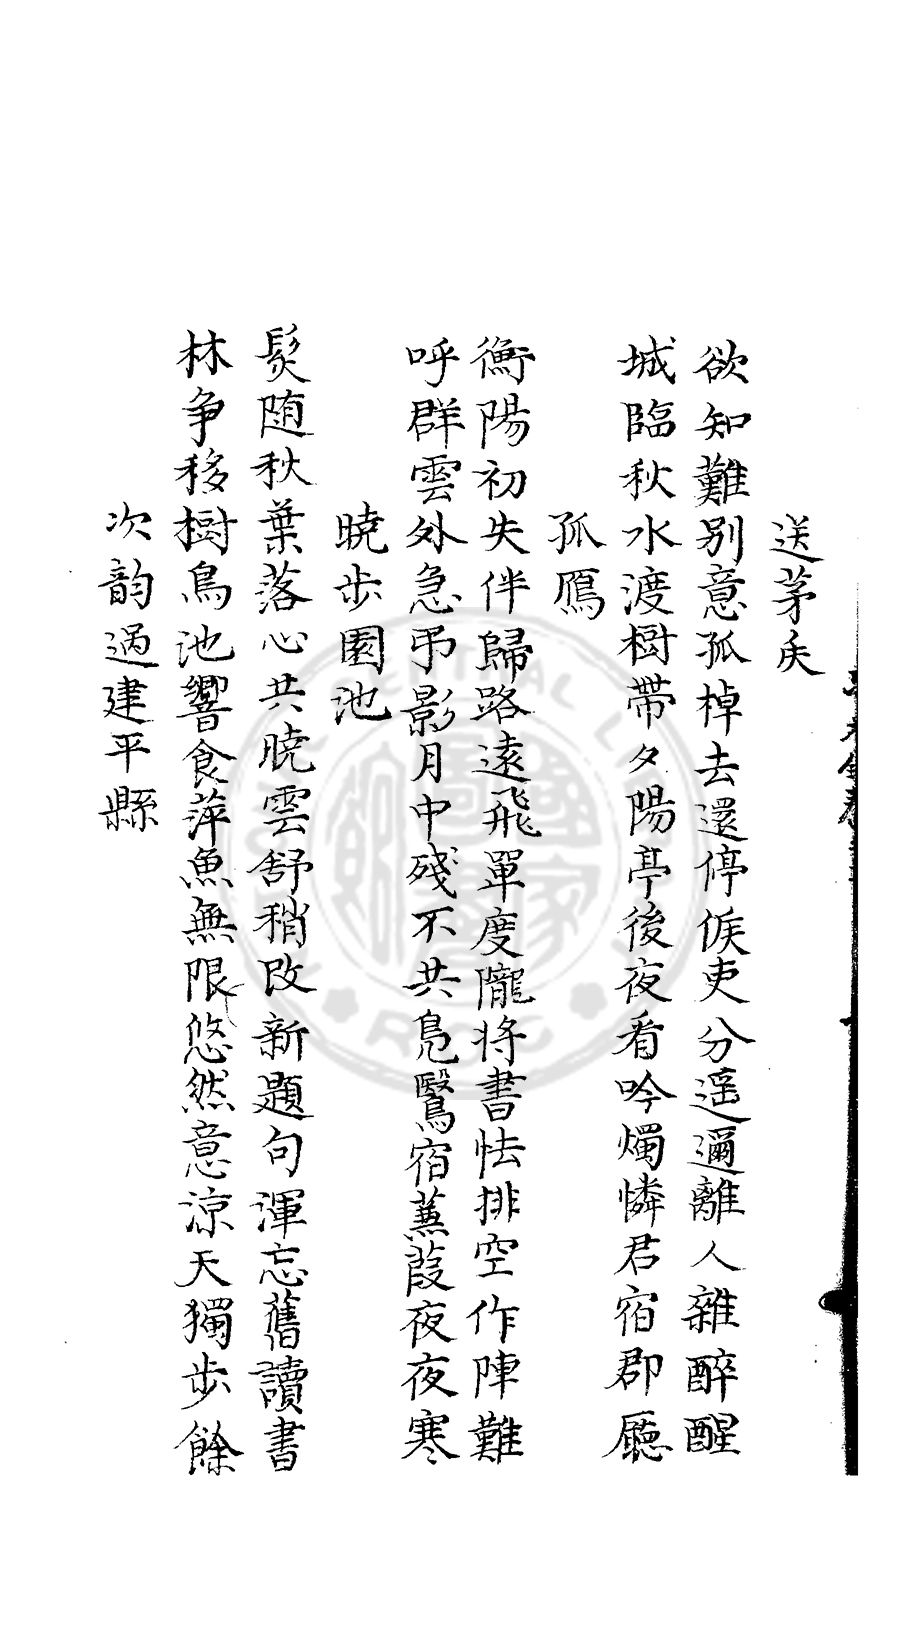 送茅矦
欲知難別意孤棹去還停候吏分遥邇離人雜醉醒
城臨秋水渡樹帶夕陽亭後夜看吟燭憐君宿郡廳
孤鴈
衡陽初失伴歸路遠飛單度隴将書怯排空作陣難
呼群雲外急弔影月中殘不共鳧鷖宿蒹葭夜夜寒
暁步園池
髪随秋葉落心共暁雲舒稍改新題句渾忘舊讀書
林争移樹鳥池響食萍魚無限悠然意涼天獨步餘
次韵過建平縣